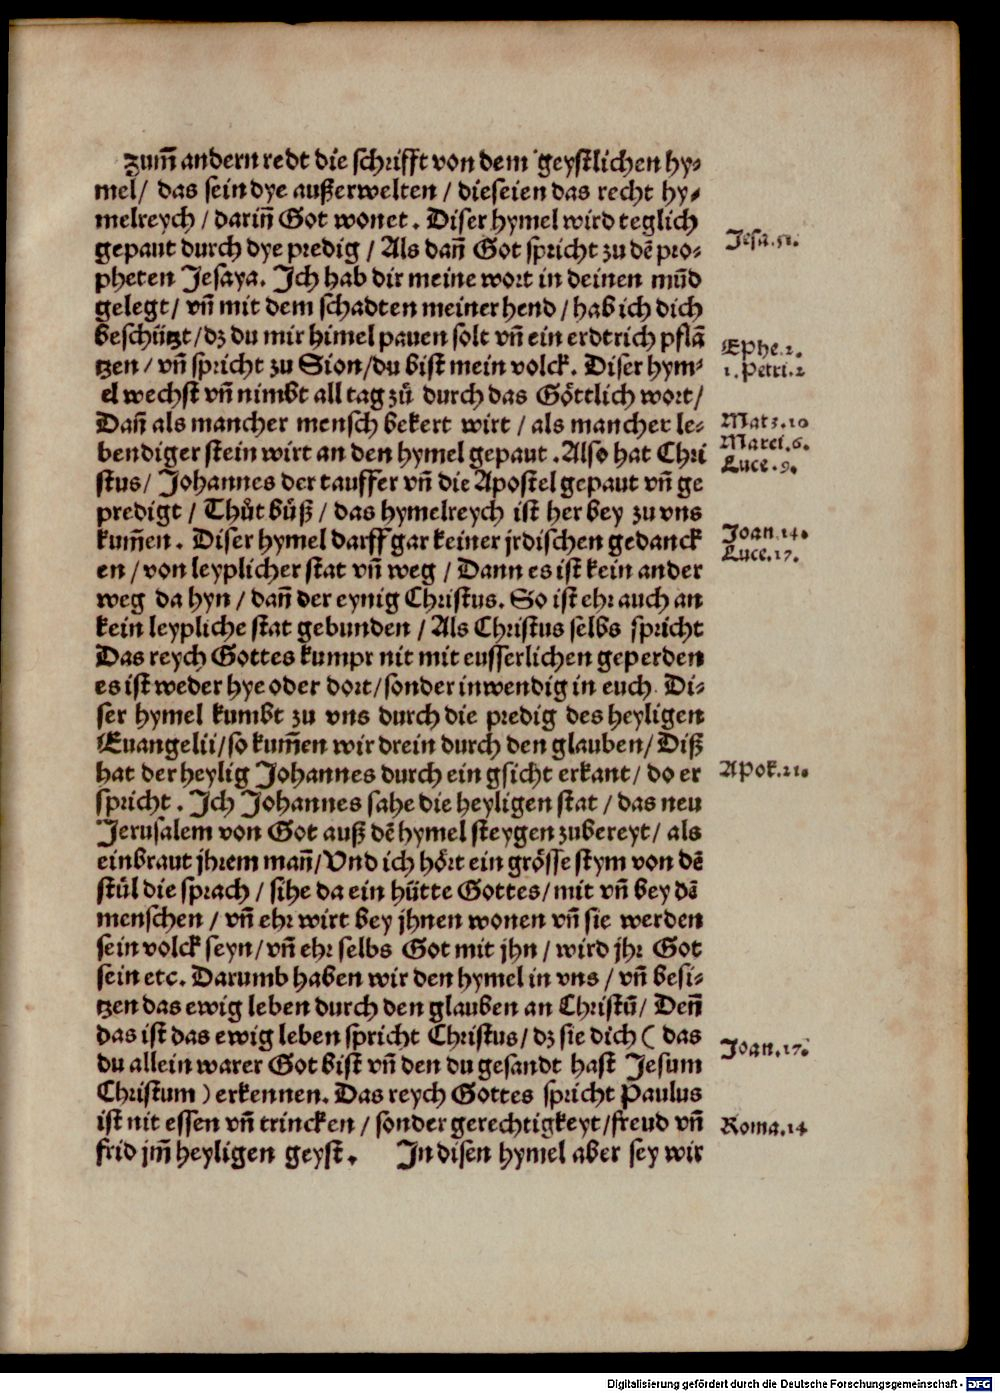 zum̃ andern redt die schrifft von dem geystlichen hy⸗
mel / das sein dye außerwelten / die seien das recht hy⸗
melreych / dariñ Got wonet . Diser hymel wird teglich
gepaut durch dye predig / Als dañ Got spricht zu dẽ pro⸗
Jesa. 51.
pheten Jesaya. Ich hab dir meine wort in deinen mũd
gelegt / vñ mit dem schadten meiner hend / hab ich dich
beschützt / dz du mir himel pauen solt vñ ein erdtrich pflã
tzen / vñ spricht zu Sion / du bist mein volck. Diser hym⸗
Ephe. 2.
1. Petri. 2
el wechst vñ nimbt all tag zů durch das Göttlich wort /
Dañ als mancher mensch bekert wirt / als mancher le⸗
Mat 3. 10
bendiger stein wirt an den hymel gepaut . Also hat Chri
Marci. 6.
Luce. 9.
stus / Johannes der tauffer vñ die Apostel gepaut vñ ge
predigt / Thůt bůß / das hymelreych ist her bey zu vns
kum̃en . Diser hymel darff gar keiner jrdischen gedanck
Joan. 14.
Luce. 17.
en / von leyplicher stat vñ weg / Dann es ist kein ander
weg da hyn / dañ der eynig Christus. So ist ehr auch an
kein leypliche stat gebunden / Als Christus selbs spricht
Das reych Gottes kumpt nit mit eusserlichen geperden
es ist weder hye oder dort / sonder inwendig in euch. Di⸗
ser hymel kumbt zu vns durch die predig des heyligen
Euangelii / so kum̃en wir drein durch den glauben / Diß
hat der heylig Johannes durch ein gsicht erkant / do er
Apok. 21.
spricht . Ich Johannes sahe die heyligen stat / das neu
Jerusalem von Got auß dẽ hymel steygen zubereyt / als
ein braut jhrem mañ / Vnd ich hört ein grösse stym von dẽ
stůl die sprach / sihe da ein hütte Gottes / mit vñ bey dẽ
menschen / vñ ehr wirt bey jhnen wonen vñ sie werden
sein volck seyn / vñ ehr selbs Got mit jhn / wird jhr Got
sein etc. Darumb haben wir den hymel in vns / vñ besi⸗
tzen das ewig leben durch den glauben an Christũ / Deñ
das ist das ewig leben spricht Christus / dz sie dich ( das
Joan. 17.
du allein warer Got bist vñ den du gesandt hast Jesum
Christum ) erkennen. Das reych Gottes spricht Paulus
ist nit essen vñ trincken / sonder gerechtigkeyt / freud vñ
Roma. 14
frid jm̃ heyligen geyst . In disen hymel aber sey wir
Digitalisierung gefördert durch die Deutsche Forschungsgemeinschaft - DFG